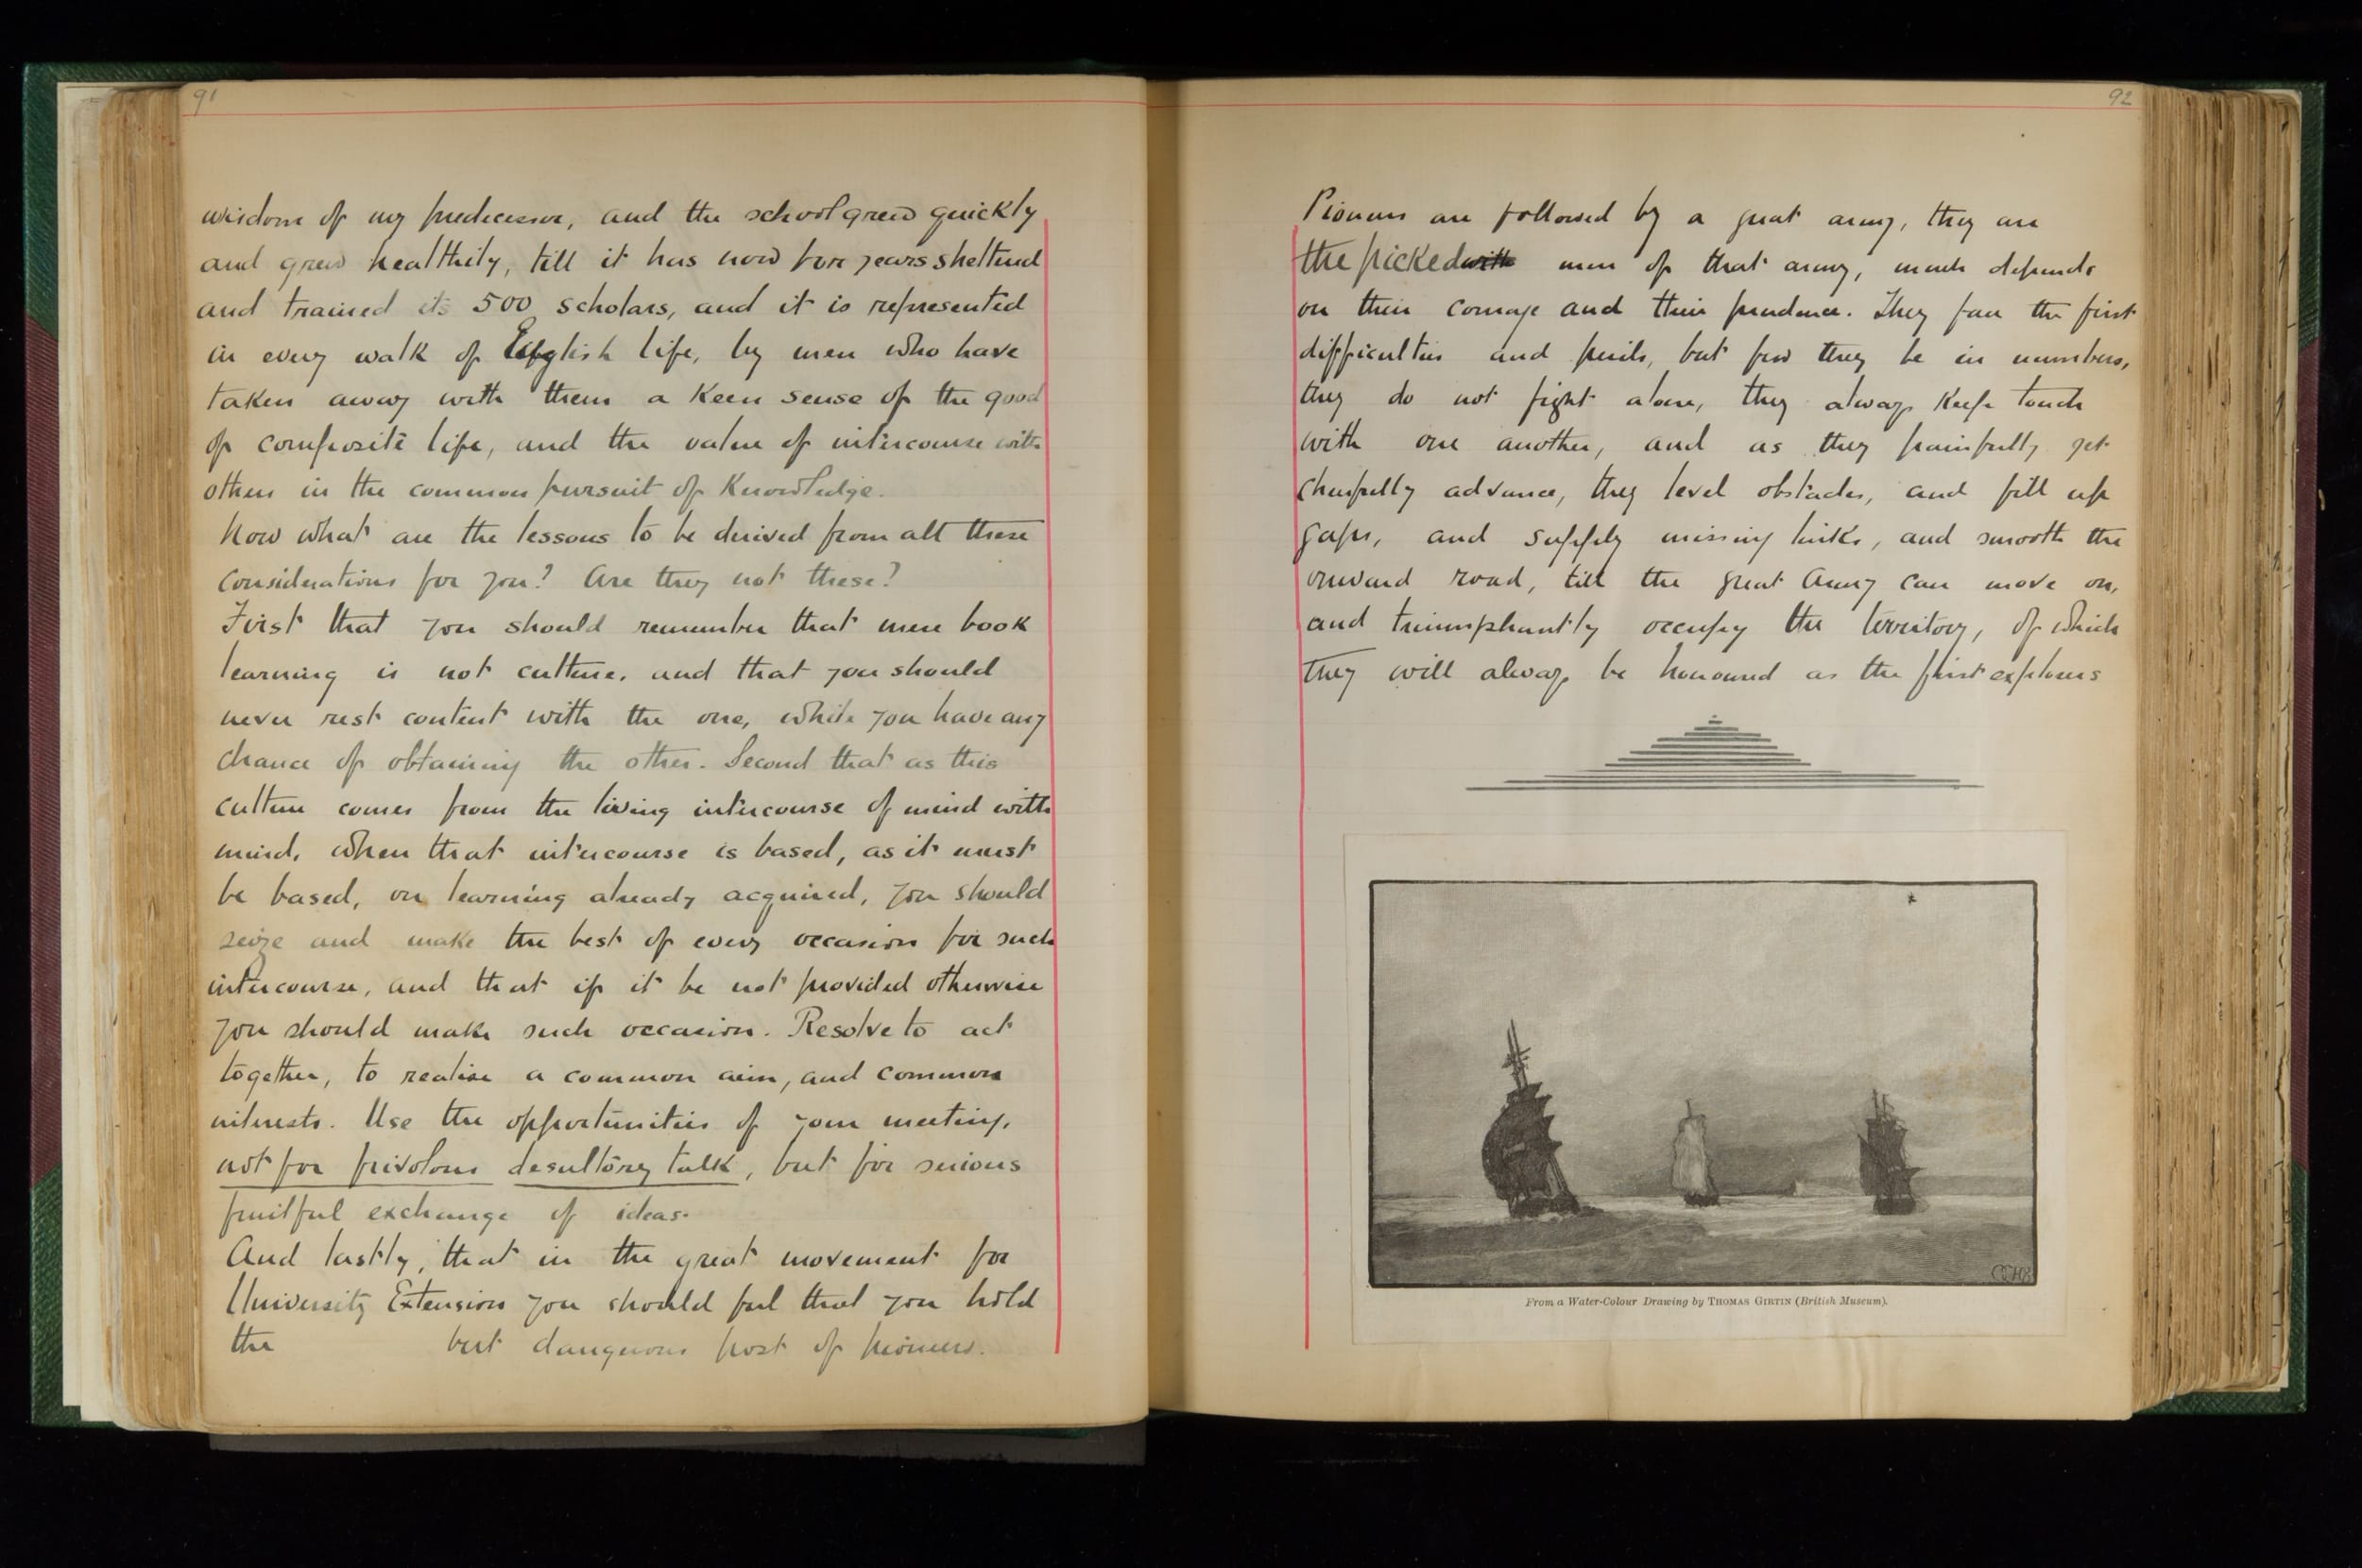 91
wisdom of my predecessor, and the school grew quickly
and grew healthily, till it has now for years sheltered
and trained its 500 scholars, and it is represented
in every walk of English life, by men who have
taken away with them a keen sense of the good
of composite life, and the value of intercourse with
others in the common pursuit of Knowledge.
Now what are the lessons to be derived from all these
considerations for you? Are they not these?
First that you should remember that mere book
learning is not culture, and that you should
never rest content with the one, while you have any
chance of obtaining the other. Second that as this
culture comes from the living intercourse of mind with
mind, when that intercourse is based, as it must
be based, on learning already acquired, you should
seize and make the best of every occasion for such
intercourse, and that if it be not provided otherwise
you should make such occasion. Resolve to act
together, to realise a common aim, and common
interests. Use the opportunities of your meeting,
not for frivolous desultory talk, but for serious
fruitful exchange of ideas.
And lastly, that in the great movement for
University Extension you should feel that you hold
the but dangerous post of pioneers.
92
Pioneers are followed by a great army, they are
the picked with men of that army, much depends
on their courage and their prudence. They face the first
difficulties and perils, but few they be in numbers,
they do not fight alone, they always keep touch
with one another, and as they painfully yet
cheerfully advance, they level obstacles, and fill up
gaps, and supply missing links, and smooth the
onward road, till the great Army can move on,
and triumphantly occupy the territory, of which
they will always be honoured as the first explorers
From a Water-Colour Drawing by THOMAS GIRTIN (British Museum).